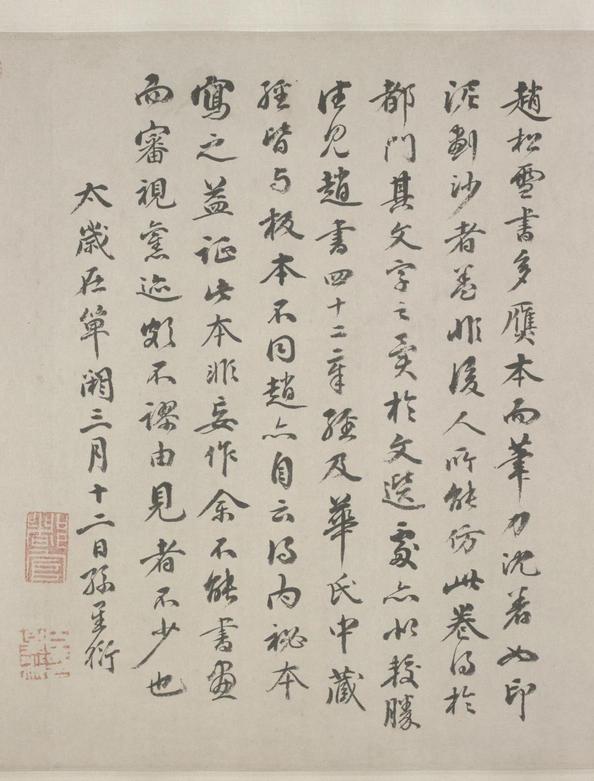 趙松雪書多贋本而筆力沈著如印
泥劃沙者蓋非後人所能仿此卷得於
都門其文字之異於文選處亦似較勝
往見趙書四十二章經及華氏中藏
經皆与板本不同趙亦自云得内祕本
寫之益証此本非妄作余不能書畫
而審視舊迹頗不謬由見者不少也
太歲在單閼三月十二日孫星衍